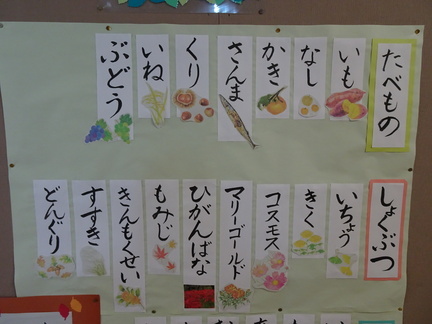 たべもの
いも
なし
かき
さんま
くり
いね
ぶどう
しょくぶつ
いちょう
きく
コスモス
マリーゴールド
ひがんばな
もみじ
きんもくせい
すすき
どんぐり